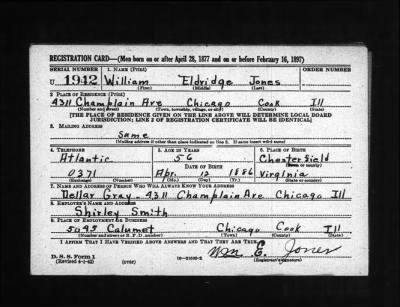 REGISTRATION CARD—(Men born on or after April 28, 1877 and on or before February 16, 1897)
SERIAL NUMBER 1. NAME (Print) ORDER NUMBER
U 1942 William Eldridge Jones
(First) (Middle) (Last)
2. PLACE OF RESIDENCE (Print)
4311 Champlain Are Chicago Cook Ill
(Number and street) (Town, township, village, or city) (County) (State)
[THE PLACE OF RESIDENCE GIVEN ON THE LINE ABOVE WILL DETERMINE LOCAL BOARD
JURISDICTION; LINE 2 OF REGISTRATION CERTIFICATE WILL BE IDENTICAL]
3. MAILING ADDRESS
Same
[Mailing address if other than place indicated on line 2. If same insert word same]
4. TELEPHONE 5. AGE IN YEARS 6. PLACE OF BIRTH
Atlantic 56 Chesterfield
DATE OF BIRTH (Town or county)
0371 Apr. 12 1886 Virginia
(Exchange) (Number) (Mo.) (Day) (Yr.) (State or country)
7. NAME AND ADDRESS OF PERSON WHO WILL ALWAYS KNOW YOUR ADDRESS
Dellar Gray - 4311 Champlain Are Chicago Ill
8. EMPLOYER'S NAME AND ADDRESS
Shirley Smith
9. PLACE OF EMPLOYMENT OR BUSINESS
5045 Calumet Chicago Cook Ill
(Number and street or R. F. D. number) (Town) (County) (State)
I AFFIRM THAT I HAVE VERIFIED ABOVE ANSWERS AND THAT THEY ARE TRUE.
D. S. S. Form 1 Wm E. Jones
(Revised 4-1-42) (over) (Registrant's signature)